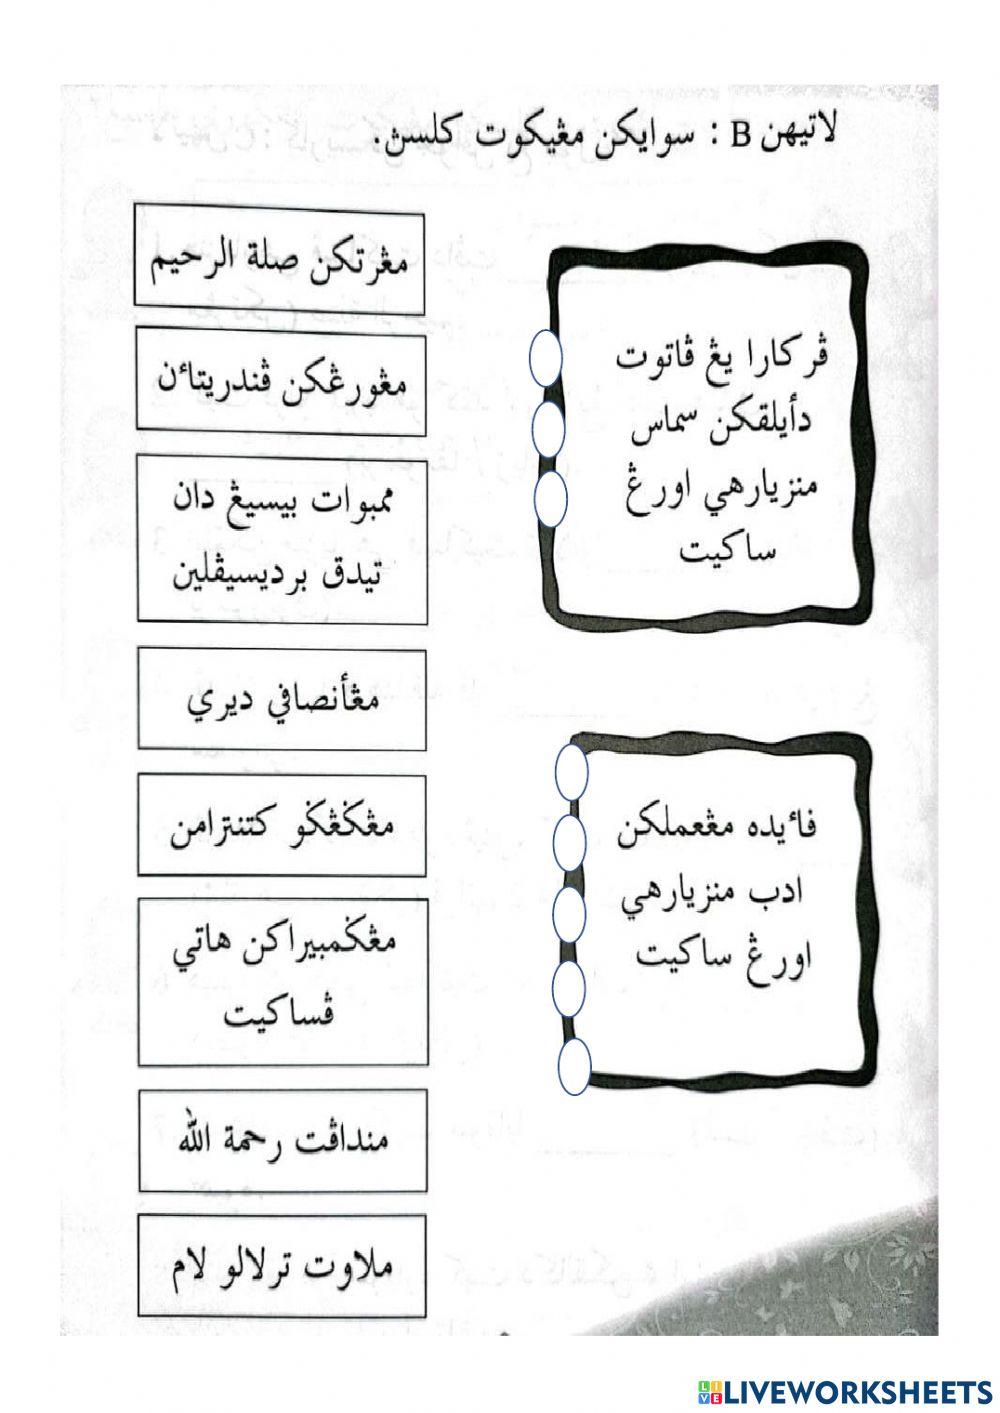 لاتيهن B : سوايكن مڠيكوت کلسن.
مڠرتكن صلة الرحيم
مڠورڠكن ڤندريتاءن
ممبوات بيسيڠ دان
تيدق برديسيڤلين
مڠأنصافي ديري
مڠݢڠݢو كتنترامن
مڠݢمبيراكن هاتي
ڤساكيت
منداڤت رحمة الله
ملاوت ترلالو لام
ڤركارا يڠ ڤاتوت
دأيلقكن سماس
منزيارهي اورڠ
ساكيت
فاءيده مڠعملكن
ادب منزيارهي
اورڠ ساكيت
LIVEWORKSHEETS